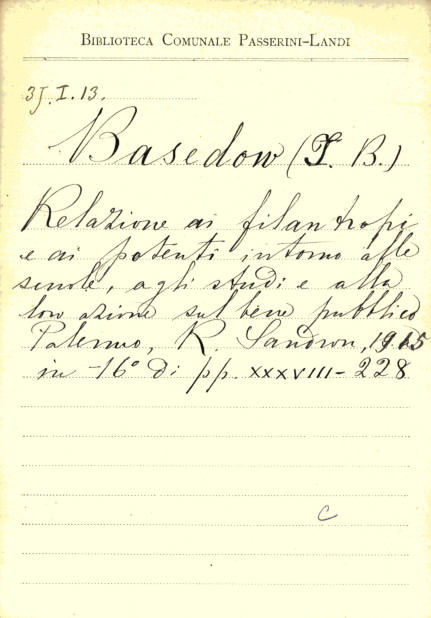 BIBLIOTECA COMUNALE PASSERINI-LANDI
3J.I.13.
Basedow (J. B.)
Relazione ai filantropi
e ai potenti intorno alle
scuole, agli studi e alla
loro azione sul bene pubblico
Palermo, R. Sandron, 1915
in-16° di pp. XXXVIII-228
C